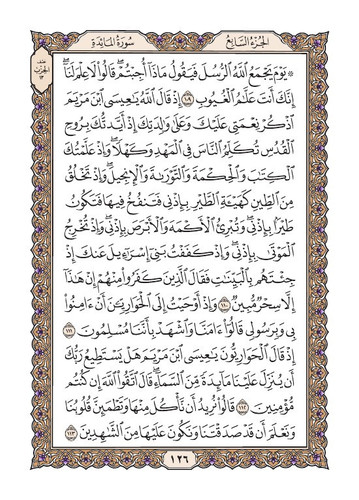 الجزء السابع سورة المائدة
۞ يَوۡمَ يَجۡمَعُ ٱللَّهُ ٱلرُّسُلَ فَيَقُولُ مَاذَآ أُجِبۡتُمۡۖ قَالُواْ لَا عِلۡمَ لَنَآۖ
إِنَّكَ أَنتَ عَلَّٰمُ ٱلۡغُيُوبِ ١٠٩ إِذۡ قَالَ ٱللَّهُ يَٰعِيسَى ٱبۡنَ مَرۡيَمَ
ٱذۡكُرۡ نِعۡمَتِي عَلَيۡكَ وَعَلَىٰ وَٰلِدَتِكَ إِذۡ أَيَّدتُّكَ بِرُوحِ
ٱلۡقُدُسِ تُكَلِّمُ ٱلنَّاسَ فِي ٱلۡمَهۡدِ وَكَهۡلٗاۖ وَإِذۡ عَلَّمۡتُكَ
ٱلۡكِتَٰبَ وَٱلۡحِكۡمَةَ وَٱلتَّوۡرَىٰةَ وَٱلۡإِنجِيلَۖ وَإِذۡ تَخۡلُقُ
مِنَ ٱلطِّينِ كَهَيۡـَٔةِ ٱلطَّيۡرِ بِإِذۡنِي فَتَنفُخُ فِيهَا فَتَكُونُ
طَيۡرَۢا بِإِذۡنِيۖ وَتُبۡرِئُ ٱلۡأَكۡمَهَ وَٱلۡأَبۡرَصَ بِإِذۡنِيۖ وَإِذۡ تُخۡرِجُ
ٱلۡمَوۡتَىٰ بِإِذۡنِيۖ وَإِذۡ كَفَفۡتُ بَنِيٓ إِسۡرَٰٓءِيلَ عَنكَ إِذۡ
جِئۡتَهُم بِٱلۡبَيِّنَٰتِ فَقَالَ ٱلَّذِينَ كَفَرُواْ مِنۡهُمۡ إِنۡ هَٰذَآ
إِلَّا سِحۡرٞ مُّبِينٞ ١١٠ وَإِذۡ أَوۡحَيۡتُ إِلَى ٱلۡحَوَارِيِّـۧنَ أَنۡ ءَامِنُواْ
بِي وَبِرَسُولِي قَالُوٓاْ ءَامَنَّا وَٱشۡهَدۡ بِأَنَّنَا مُسۡلِمُونَ ١١١
إِذۡ قَالَ ٱلۡحَوَارِيُّونَ يَٰعِيسَى ٱبۡنَ مَرۡيَمَ هَلۡ يَسۡتَطِيعُ رَبُّكَ
أَن يُنَزِّلَ عَلَيۡنَا مَآئِدَةٗ مِّنَ ٱلسَّمَآءِۖ قَالَ ٱتَّقُواْ ٱللَّهَ إِن كُنتُم
مُّؤۡمِنِينَ ١١٢ قَالُواْ نُرِيدُ أَن نَّأۡكُلَ مِنۡهَا وَتَطۡمَئِنَّ قُلُوبُنَا
وَنَعۡلَمَ أَن قَدۡ صَدَقۡتَنَا وَنَكُونَ عَلَيۡهَا مِنَ ٱلشَّٰهِدِينَ ١١٣
١٢٦